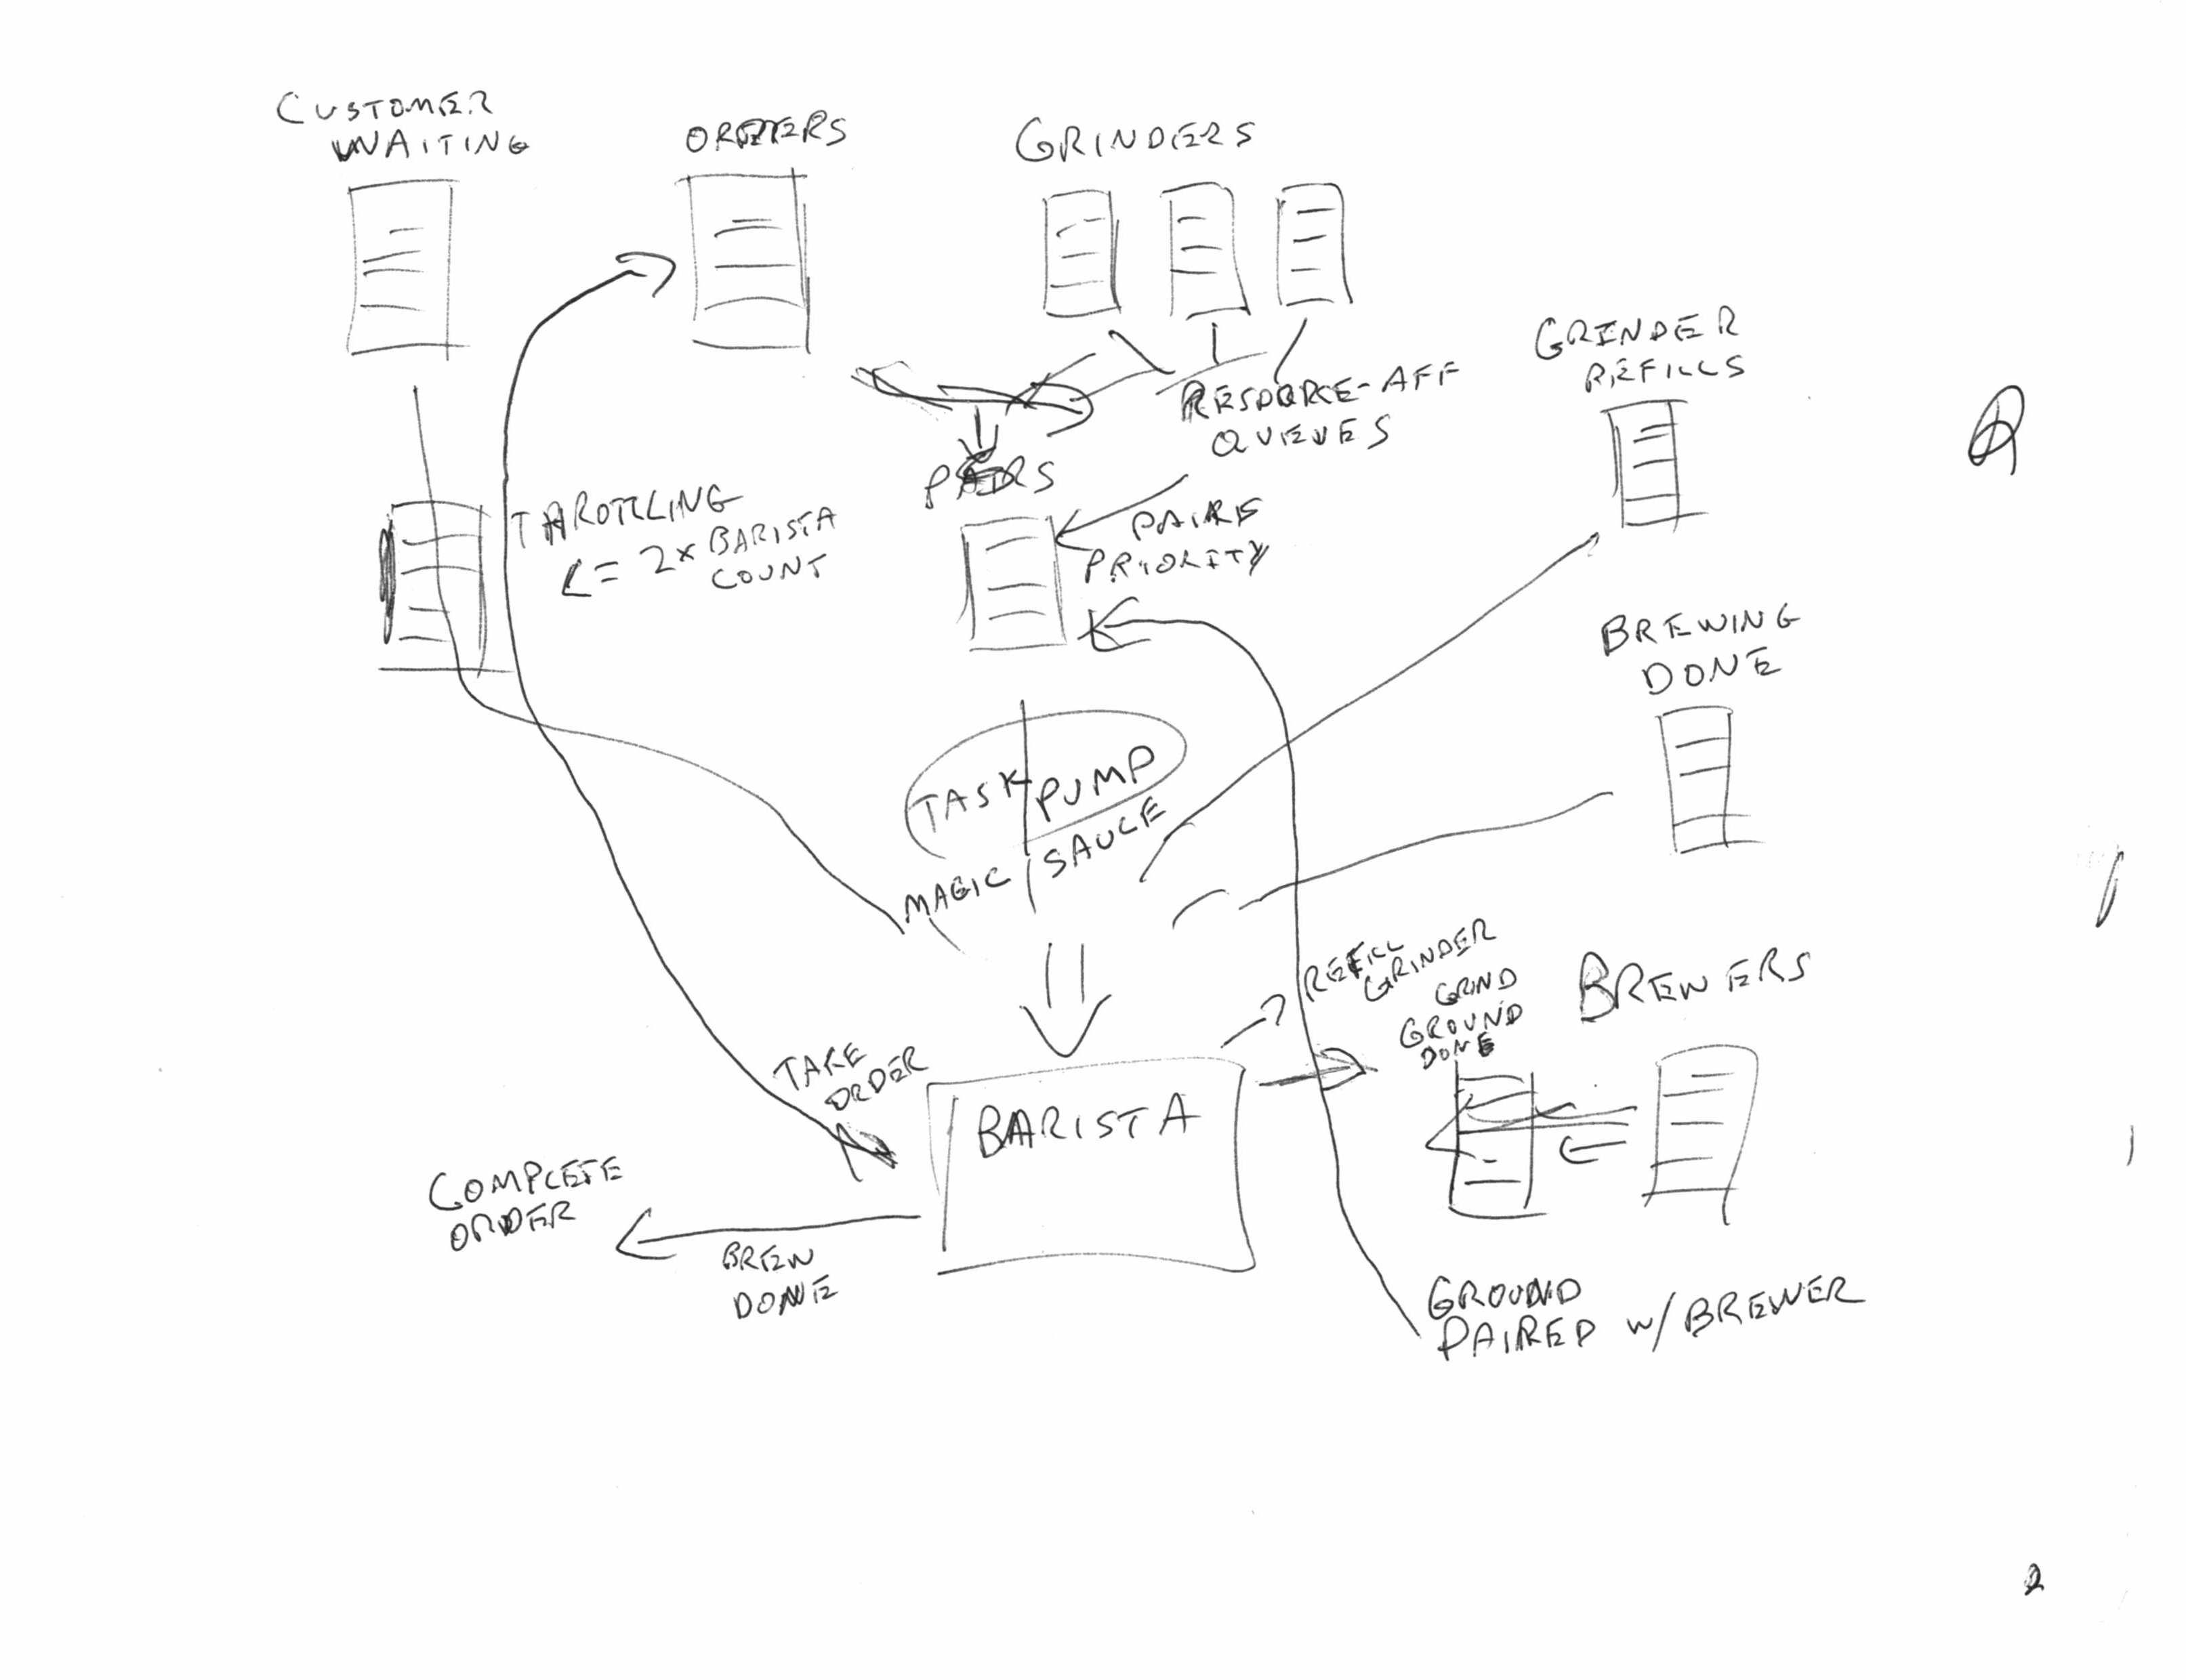 CUSTOMER
WAITING
ORDERS
GRINDERS
GRINDER
REFILLS
RESOURCE-AFF
QUEUES
PAIRS
THROTTLING
<= 2x BARISTA
COUNT
PAIRS
PRIORITY
BREWING
DONE
TASK PUMP
MAGIC SAUCE
REFILL
GRINDER
GRIND
GROUND
DONE
BREWERS
TAKE
ORDER
BARISTA
COMPLETE
ORDER
BREW
DONE
GROUND
PAIRED w/ BREWER
2